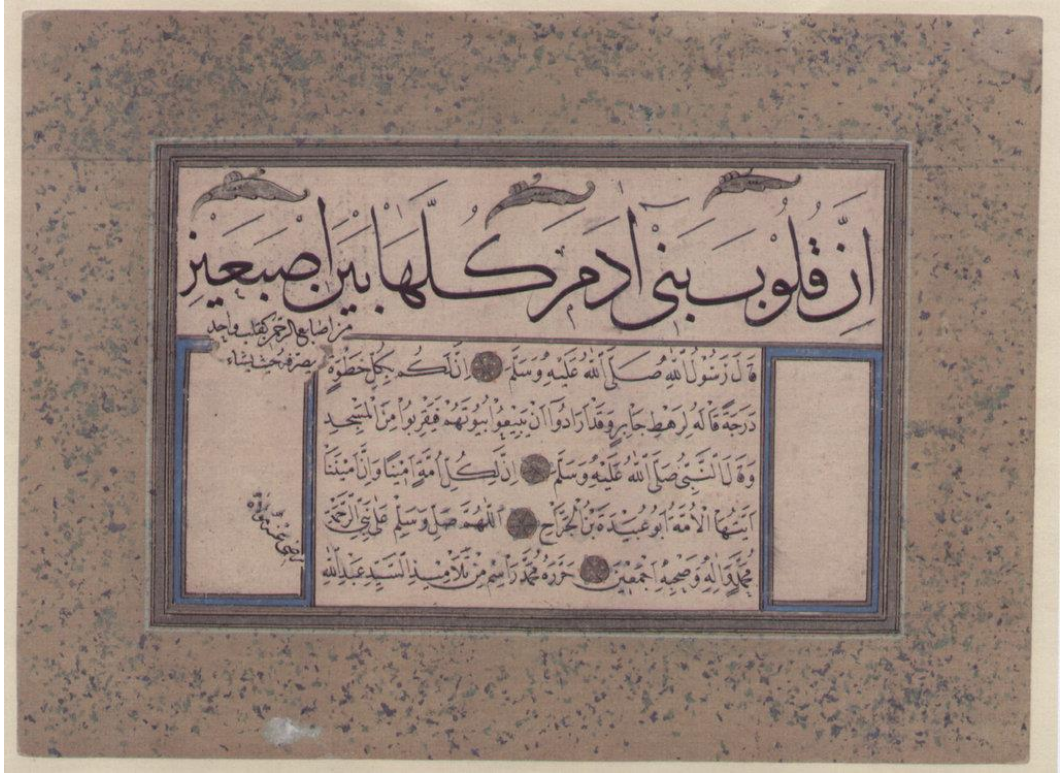 اِنَّ قُلُوْبَ بَنِيْ اٰدَمَ كُلَّهَا بَيْنَ اِصْبَعَيْنِ
من اصابع الرحمن كقلب واحد
يصرفه حيث يشاء
قَالَ رَسُوْلُ اللّٰهِ صَلَّى اللّٰهُ عَلَيْهِ وَسَلَّمَ اِنَّ لَكُمْ بِكُلِّ خَطْوَةٍ
دَرَجَةً قَالَهُ لِرَهْطِ جَابِرٍ وَقَدْ اَرَادُوْا اَنْ يَبِيْعُوْا بُيُوْتَهُمْ فَيَقْرُبُوْا مِنَ الْمَسْجِدِ
وَقَالَ النَّبِيُّ صَلَّى اللّٰهُ عَلَيْهِ وَسَلَّمَ اِنَّ لِكُلِّ اُمَّةٍ اَمِيْنًا وَاِنَّ اَمِيْنَنَا
اَيَّتُهَا الْاُمَّةُ اَبُوْ عُبَيْدَةَ بْنُ الْجَرَّاحِ اَللّٰهُمَّ صَلِّ وَسَلِّمْ عَلٰى نَبِيِّ الرَّحْمَةِ
مُحَمَّدٍ وَاٰلِهِ وَصَحْبِهِ اَجْمَعِيْنَ حَرَّرَهُ مُحَمَّدْ رَاسِمْ مِنْ تَلَامِيْذِ السَّيِّدِ عَبْدِ اللّٰهِ